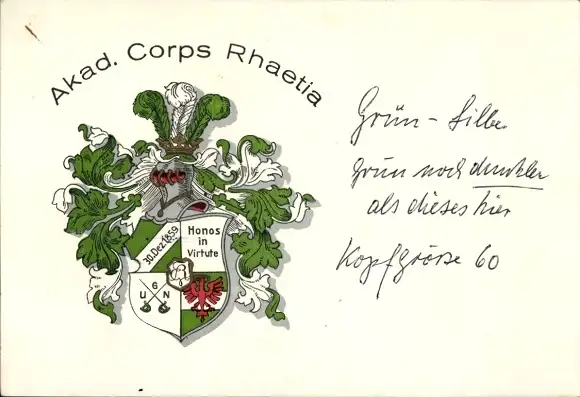 Akad. Corps Rhaetia
30. Dez. 1859
Honos
in
Virtute
6
U N
Grün – Silber
grün noch dunkler
als dieses hier
Kopfgrösse 60